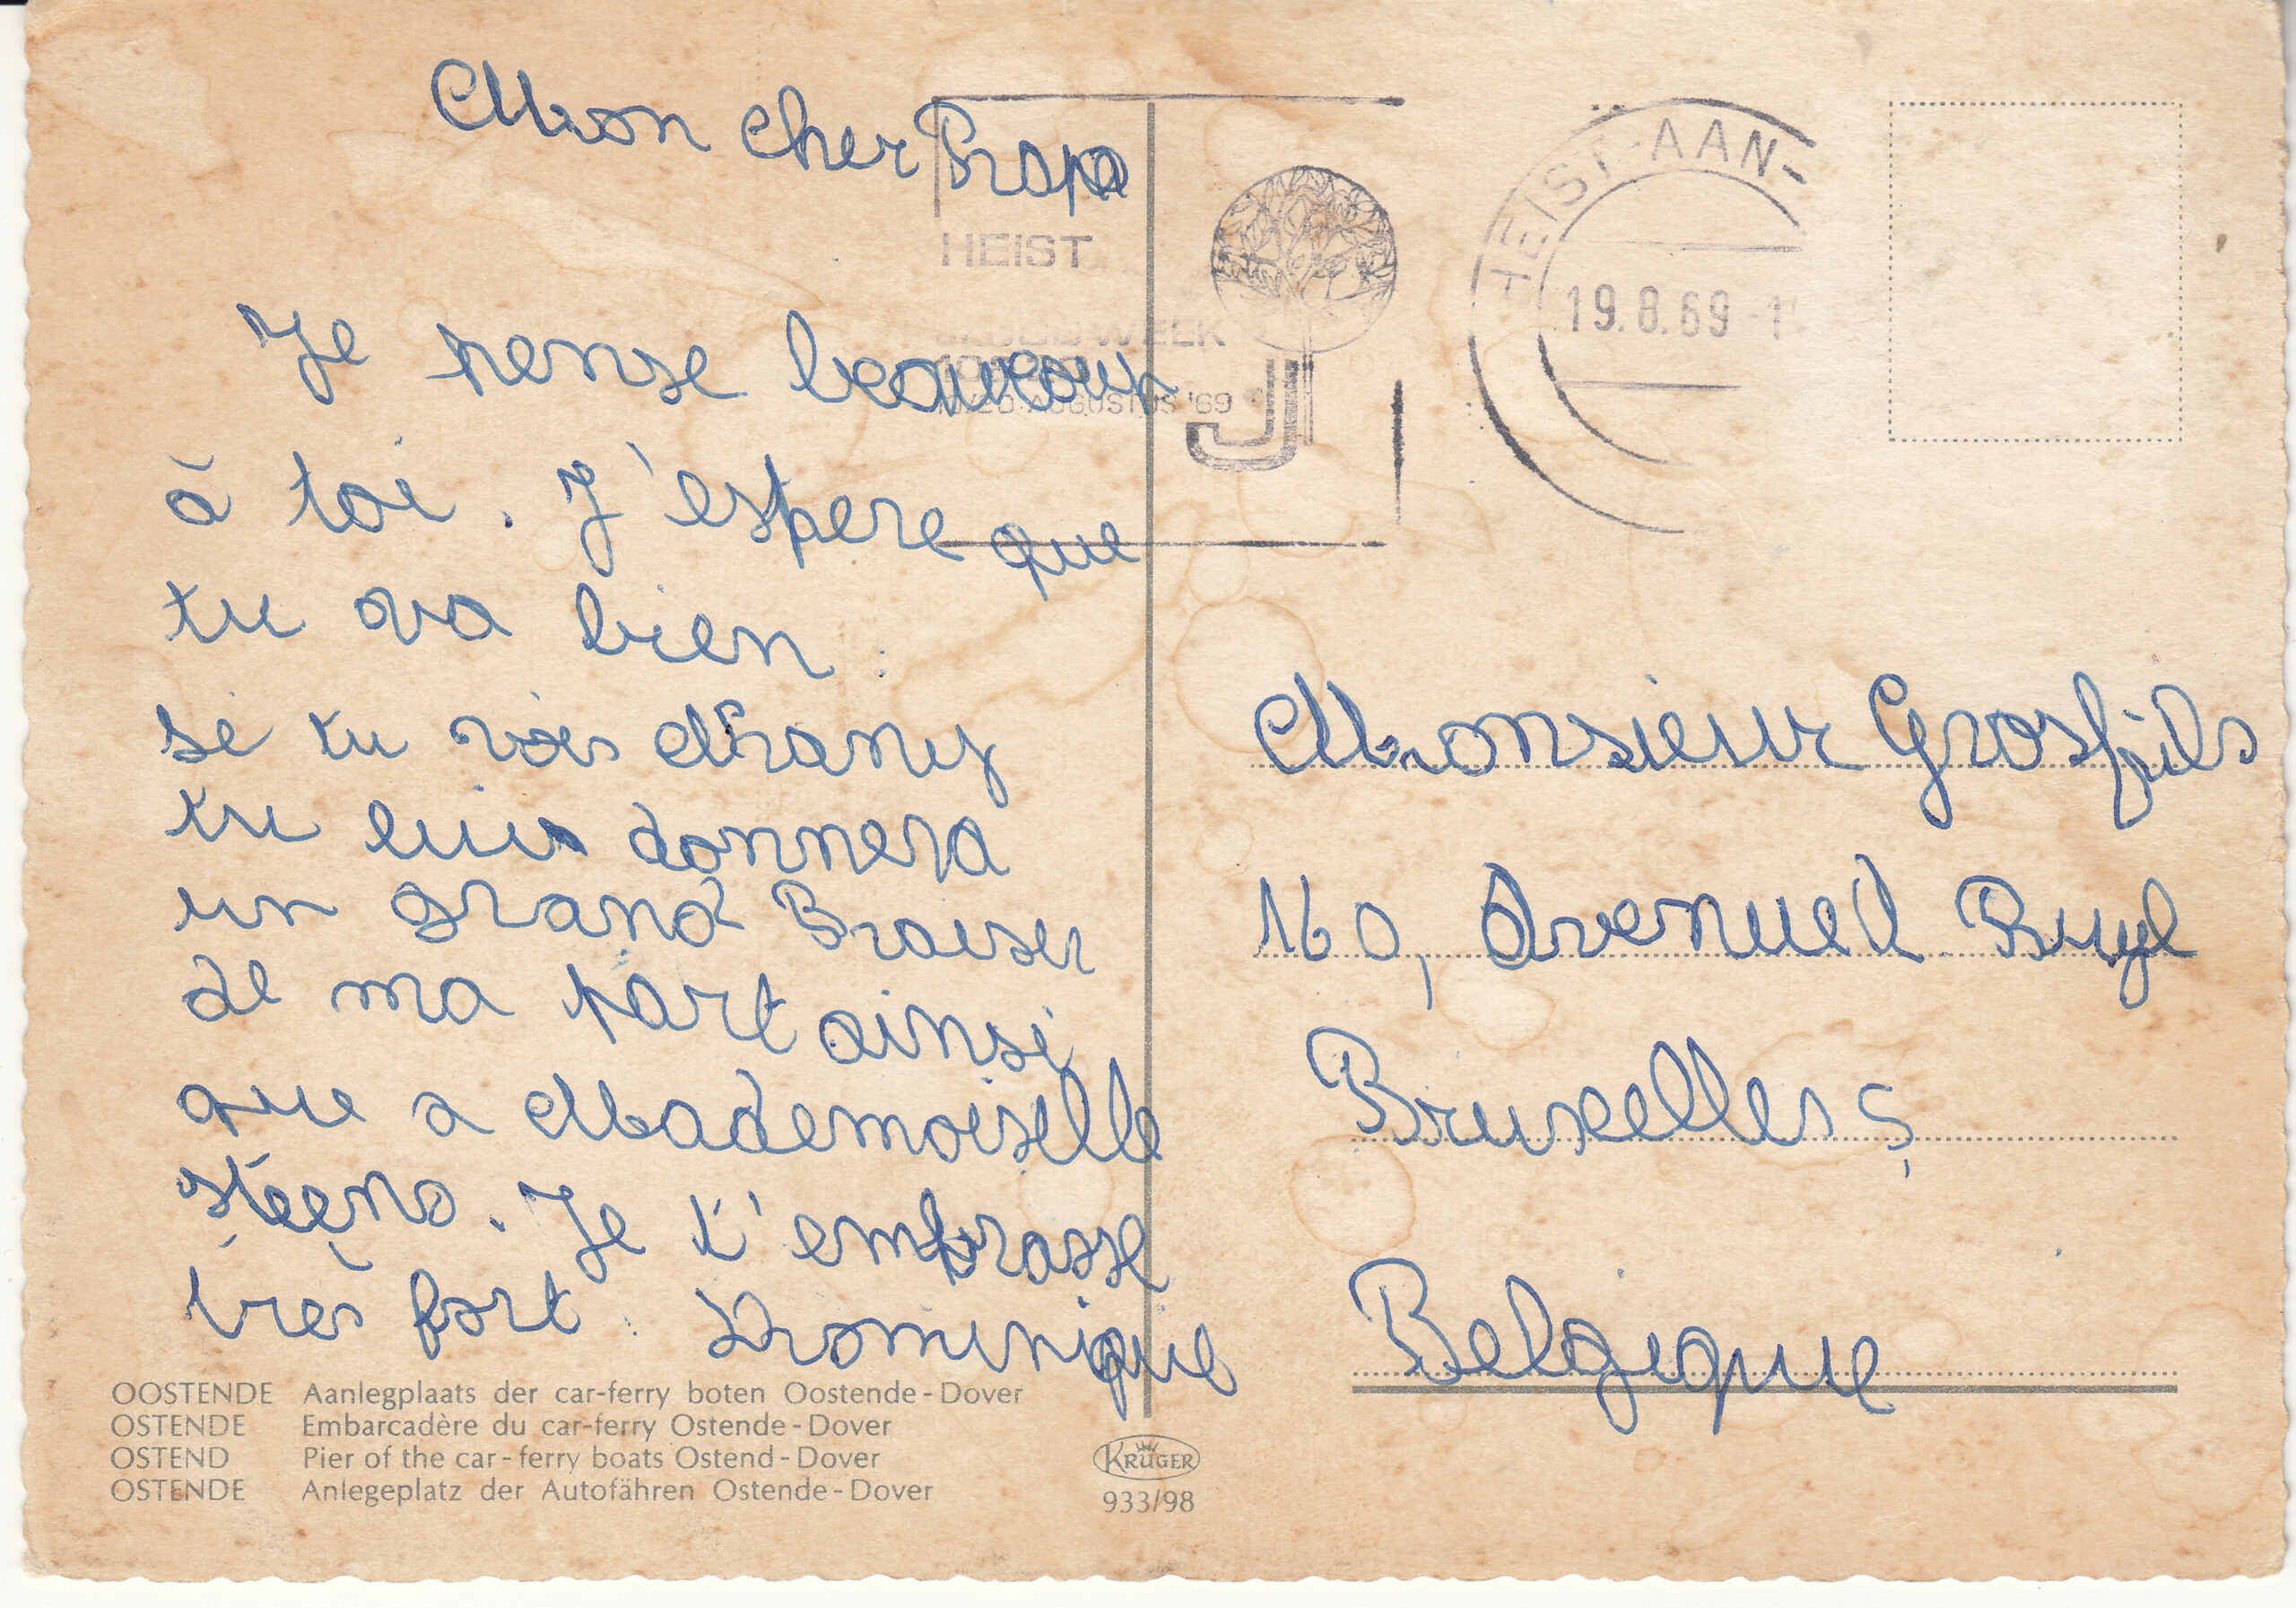 Mon cher Papa
Je pense beaucoup
à toi. J'espere que
tu va bien.
si tu vois Many
tu lui donnera
un grand Baiser
de ma part ainsi
que a Mademoiselle
steens. Je t'embrasse
très fort. Dominique
OOSTENDE Aanlegplaats der car-ferry boten Oostende - Dover
OSTENDE Embarcadère du car-ferry Ostende - Dover
OSTEND Pier of the car-ferry boats Ostend - Dover
OSTENDE Anlegeplatz der Autofähren Ostende - Dover
KRÜGER
933/98
HEIST
AUGUSTUS '69
J
HEIST-AAN-
19.8.69
Monsieur Grosfils
160, Avenue Buyl
Bruxelles 5
Belgique